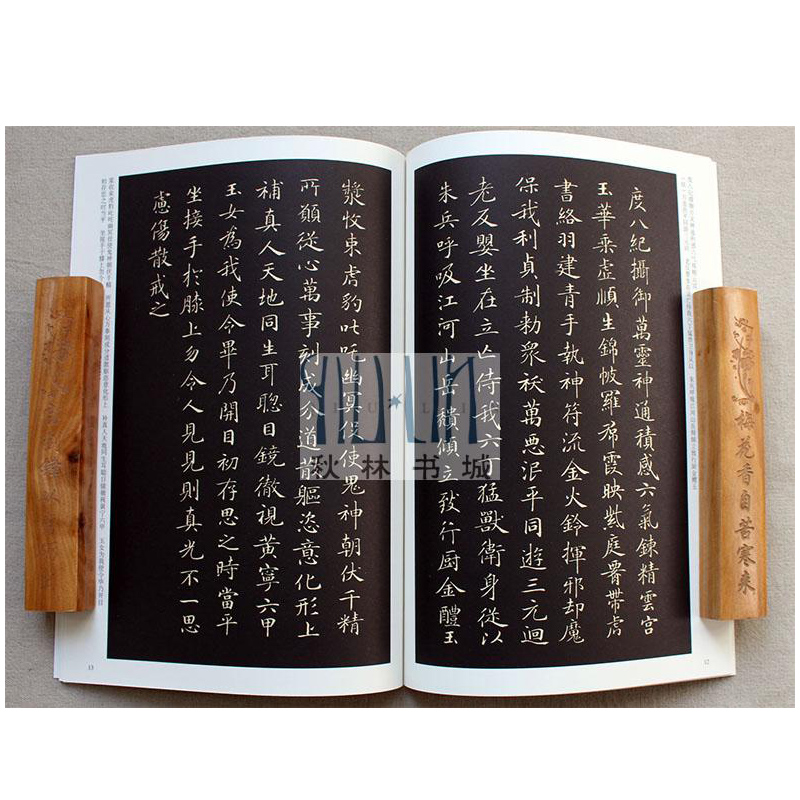 度八紀攝御萬靈神通積感六氣鍊精雲宮
玉華乘虛順生錦帔羅帬霞映紫庭腰帶虎
書絡羽建青手執神符流金火鈴揮邪却魔
保我利貞制勅衆祅萬惡泯平同遊三元迴
老反嬰坐在立亡侍我六猛獸衛身從以
朱兵呼吸江河山岳穨傾立致行厨金醴玉
12
漿收束虎豹叱吒幽冥役使鬼神朝伏千精
所願從心萬事剋成分道散軀恣意化形上
補真人天地同生耳聰目鏡徹視黃寧六甲
玉女為我使令畢乃開目初存思之時當平
坐接手於膝上勿令人見見則真光不一思
慮傷散戒之
13
梅花香自苦寒来
秋林书城